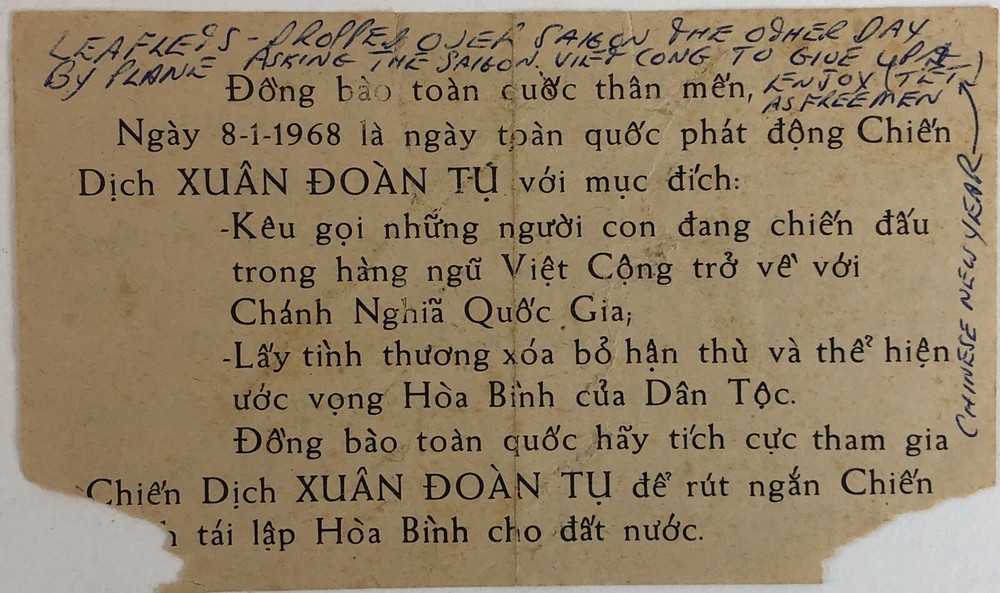 LEAFLETS - DROPPED OVER SAIGON THE OTHER DAY
BY PLANE ASKING THE SAIGON VIET CONG TO GIVE UP &
ENJOY (TET)
AS FREE MEN
CHINESE NEW YEAR
Đồng bào toàn quốc thân mến,
Ngày 8-1-1968 là ngày toàn quốc phát động Chiến
Dịch XUÂN ĐOÀN TỤ với mục đích:
-Kêu gọi những người con đang chiến đấu
trong hàng ngũ Việt Cộng trở về với
Chánh Nghiã Quốc Gia;
-Lấy tình thương xóa bỏ hận thù và thể hiện
ước vọng Hòa Bình của Dân Tộc.
Đồng bào toàn quốc hãy tích cực tham gia
Chiến Dịch XUÂN ĐOÀN TỤ để rút ngắn Chiến
tái lập Hòa Bình cho đất nước.